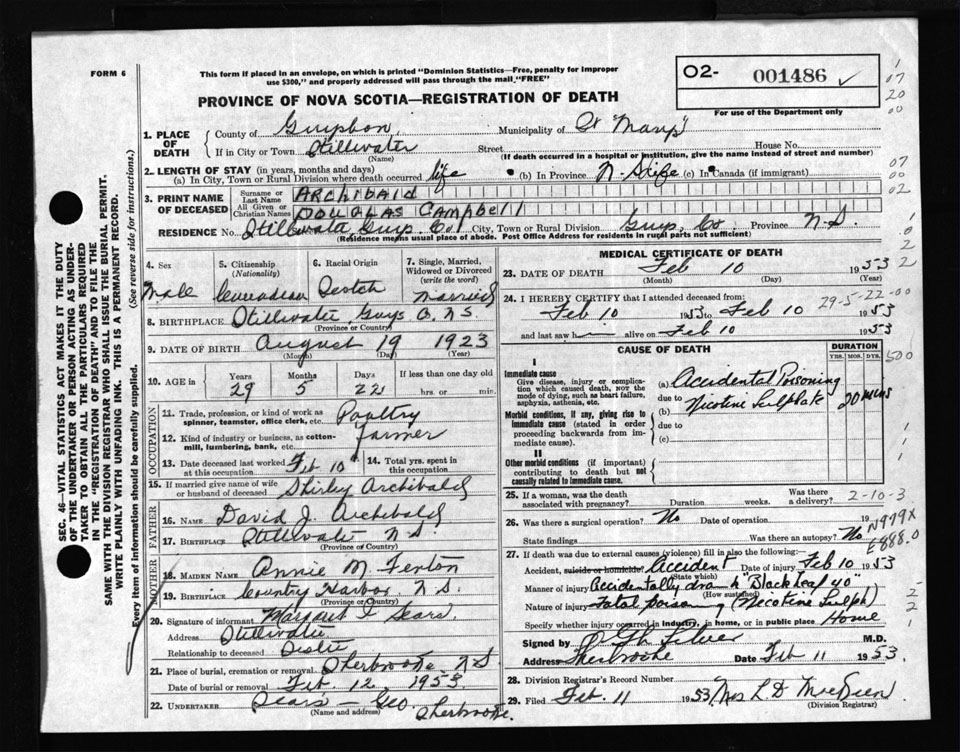 FORM 6
This form if placed in an envelope, on which is printed "Dominion Statistics—Free, penalty for improper
use $300," and properly addressed will pass through the mail "FREE"
O2- 001486 ✓
For use of the Department only
PROVINCE OF NOVA SCOTIA—REGISTRATION OF DEATH
1. PLACE OF DEATH
County of Municipality of St Marys
If in City or Town Stillwater Street House No.
(Name) (If death occurred in a hospital or institution, give the name instead of street and number)
2. LENGTH OF STAY (in years, months and days)
(a) In City, Town or Rural Division where death occurred life (b) In Province N-S life (c) In Canada (if immigrant)
3. PRINT NAME OF DECEASED
Surname or Last Name ARCHIBALD
All Given or Christian Names DOUGLAS Campbell
RESIDENCE No. Stillwater Guys. Co. City, Town or Rural Division Guys. Co Province N.S.
(Residence means usual place of abode. Post Office Address for residents in rural parts not sufficient)
4. Sex Male
5. Citizenship (Nationality) Canadian
6. Racial Origin Scotch
7. Single, Married, Widowed or Divorced (write the word) Married
8. BIRTHPLACE Stillwater Guys Co. N.S.
(Province or Country)
9. DATE OF BIRTH August 19 1923
(Month) (Day) (Year)
10. AGE in Years Months Days If less than one day old
29 5 22 hrs. or min.
OCCUPATION
11. Trade, profession, or kind of work as spinner, teamster, office clerk, etc. Poultry
12. Kind of industry or business, as cotton-mill, lumbering, bank, etc. farmer
13. Date deceased last worked at this occupation Feb 10 14. Total yrs. spent in this occupation
15. If married give name of wife or husband of deceased Shirley Archibald
FATHER
16. NAME David J. Archibald
17. BIRTHPLACE Stillwater N.S.
(Province or Country)
MOTHER
18. MAIDEN NAME Annie M. Fenton
19. BIRTHPLACE Country Harbor N.S.
(Province or Country)
20. Signature of informant Margaret F Sears.
Address Stillwater
Relationship to deceased Sister
21. Place of burial, cremation or removal Sherbrooke N.S
Date of burial or removal Feb. 12 1953.
22. Undertaker Sears – Geo. Sherbrooke.
(Name and address)
MEDICAL CERTIFICATE OF DEATH
23. DATE OF DEATH Feb 10 1953
(Month) (Day) (Year)
29-5-22-00
24. I HEREBY CERTIFY that I attended deceased from:
Feb 10 1953 to Feb 10 1953
and last saw him alive on Feb 10 1953
CAUSE OF DEATH
DURATION
YRS. MOS. DYS.
I
Immediate cause
Give disease, injury or complication which caused death, not the mode of dying, such as heart failure, asphyxia, asthenia, etc.
(a) Accidental Poisoning
due to
Morbid conditions, if any, giving rise to immediate cause (stated in order proceeding backwards from immediate cause).
(b) Nicotine Sulphate 20 mins
due to
(c)
II
Other morbid conditions (if important) contributing to death but not causally related to immediate cause.
25. If a woman, was the death associated with pregnancy? Duration weeks. Was there a delivery?
2-10-3
26. Was there a surgical operation? No Date of operation 19
State findings Was there an autopsy? No
N979X
E888.0
27. If death was due to external causes (violence) fill in also the following:—
Accident, suicide or homicide? Accident Date of injury Feb 10 1953
(State which)
Manner of injury Accidentally drank "Black leaf 40"
(How sustained)
Nature of injury Fatal poisoning (Nicotine Sulph)
Specify whether injury occurred in industry, in home, or in public place Home
Signed by M.D.
Address Sherbrooke Date Feb 11 1953.
28. Division Registrar's Record Number
29. Filed Feb. 11 1953 Mrs L D MacKeen
(Division Registrar)
SEC. 46—VITAL STATISTICS ACT MAKES IT THE DUTY
OF THE UNDERTAKER OR PERSON ACTING AS UNDERTAKER
TO OBTAIN ALL THE PARTICULARS REQUIRED
IN THE "REGISTRATION OF DEATH" AND TO FILE THE
SAME WITH THE DIVISION REGISTRAR WHO SHALL ISSUE THE BURIAL PERMIT.
WRITE PLAINLY WITH UNFADING INK. THIS IS A PERMANENT RECORD.
Every item of information should be carefully supplied. (See reverse side for instructions.)